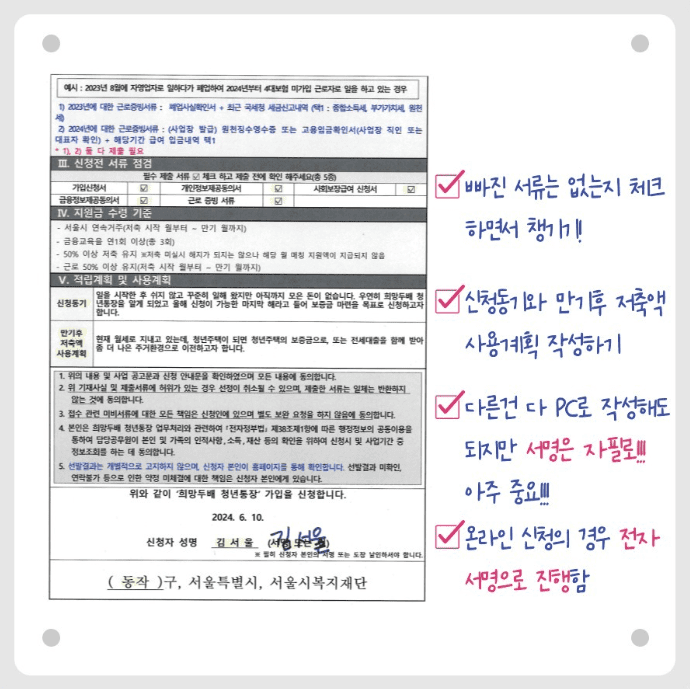 예시 : 2023년 8월에 자영업자로 일하다가 폐업하여 2024년부터 4대보험 미가입 근로자로 일을 하고 있는 경우
1) 2023년에 대한 근로증빙서류 : 폐업사실확인서 + 최근 국세청 세금신고내역 (택1 : 종합소득세, 부가가치세, 원천
세)
2) 2024년에 대한 근로증빙서류 : (사업장 발급) 원천징수영수증 또는 고용임금확인서(사업장 직인 또는
대표자 확인) + 해당기간 급여 입금내역 택1
* 1), 2) 둘 다 제출 필요
Ⅲ. 신청전 서류 점검
필수 제출 서류 ☑ 체크 하고 제출 전에 확인 해주세요(총 5종)
가입신청서 ☑ 개인정보제공동의서 ☑ 사회보장급여 신청서 ☑
금융정보제공동의서 ☑ 근로 증빙 서류 ☑
Ⅳ. 지원금 수령 기준
- 서울시 연속거주(저축 시작 월부터 ~ 만기 월까지)
- 금융교육을 연1회 이상(총 3회)
- 50% 이상 저축 유지 ※저축 미실시 해지가 되지는 않으나 해당 월 매칭 지원액이 지급되지 않음
- 근로 50% 이상 유지(저축 시작 월부터 ~ 만기 월까지)
Ⅴ. 적립계획 및 사용계획
신청동기
일을 시작한 후 쉬지 않고 꾸준히 일해 왔지만 아직까지 모은 돈이 없습니다. 우연히 희망두배 청
년통장을 알게 되었고 올해 신청이 가능한 마지막 해라고 들어 보증금 마련을 목표로 신청하고자
합니다.
만기후
저축액
사용계획
현재 월세로 지내고 있는데, 청년주택이 되면 청년주택의 보증금으로, 또는 전세대출을 함께 받아
좀 더 나은 주거환경으로 이전하고자 합니다.
1. 위의 내용 및 사업 공고문과 신청 안내문을 확인하였으며 모든 내용에 동의합니다.
2. 위 기재사실 및 제출서류에 허위가 있는 경우 선정이 취소될 수 있으며, 제출한 서류는 일체는 반환하지
않는 것에 동의합니다.
3. 접수 관련 미비서류에 대한 모든 책임은 신청인에 있으며 별도 보완 요청을 하지 않음에 동의합니다.
4. 본인은 희망두배 청년통장 업무처리와 관련하여 「전자정부법」 제38조제1항에 따른 행정정보의 공동이용을
통하여 담당공무원이 본인 및 가족의 인적사항, 소득, 재산 등의 확인을 위하여 신청시 및 사업기간 중
정보조회를 하는 데 동의합니다.
5. 선발결과는 개별적으로 고지하지 않으며, 신청자 본인이 홈페이지를 통해 확인합니다. 선발결과 미확인,
연락불가 등으로 인한 약정 미체결에 대한 책임은 신청자 본인에게 있습니다.
위와 같이 '희망두배 청년통장' 가입을 신청합니다.
2024. 6. 10.
신청자 성명 김 서 울 (서명 또는 인) 김서울
※ 필히 신청자 본인의 서명 또는 도장 날인하셔야 합니다.
( 동작 )구, 서울특별시, 서울시복지재단
빠진 서류는 없는지 체크
하면서 챙기기!
신청동기와 만기후 저축액
사용계획 작성하기
다른건 다 PC로 작성해도
되지만 서명은 자필로!!!
아주 중요!!!
온라인 신청의 경우 전자
서명으로 진행함